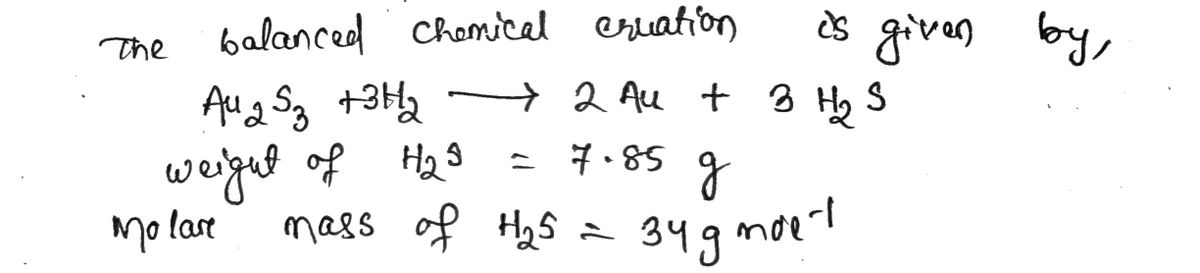 The balanced chemical equation is given by,
Au₂S₃ + 3H₂ → 2 Au + 3 H₂S
weight of H₂S = 7.85 g
Molar mass of H₂S = 34 g mol⁻¹